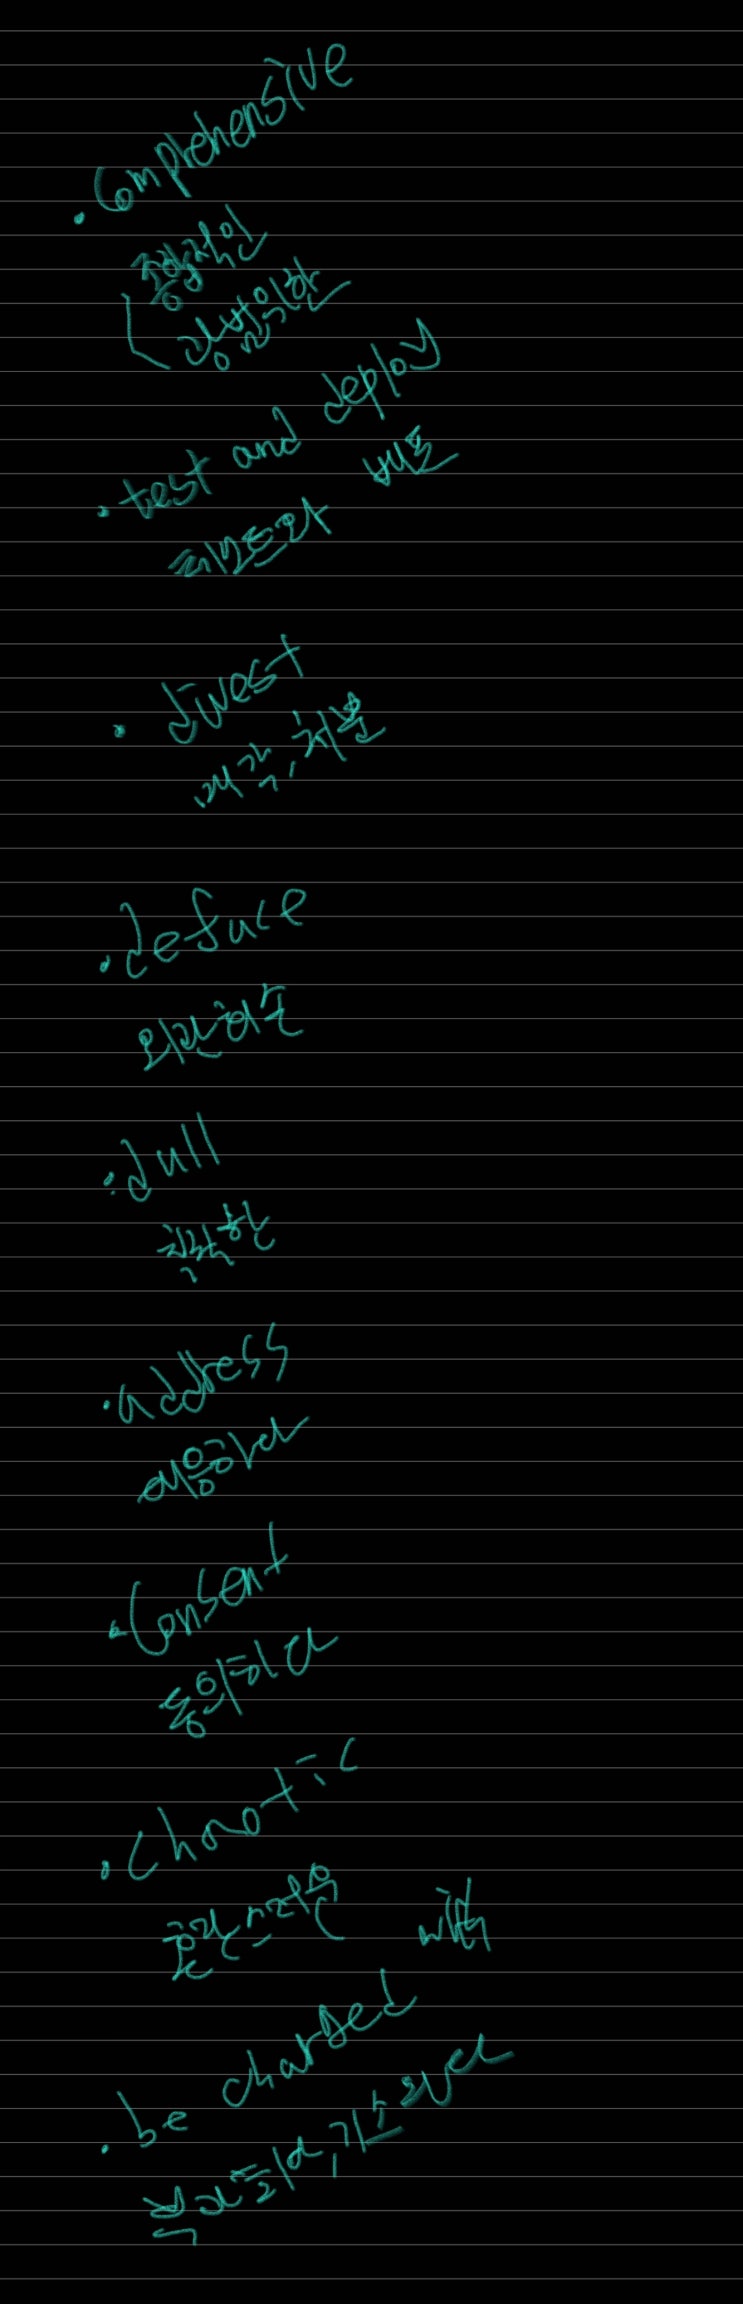 • Comprehensive
종합적인
광범위한
• test and deploy
테스트와 배포
• divest
매각, 처분
• deface
외관훼손
• dull
칙칙한
• address
• Consent
동의하다
• chaotic
혼란스러운
• be charged
부과되다, 기소되다